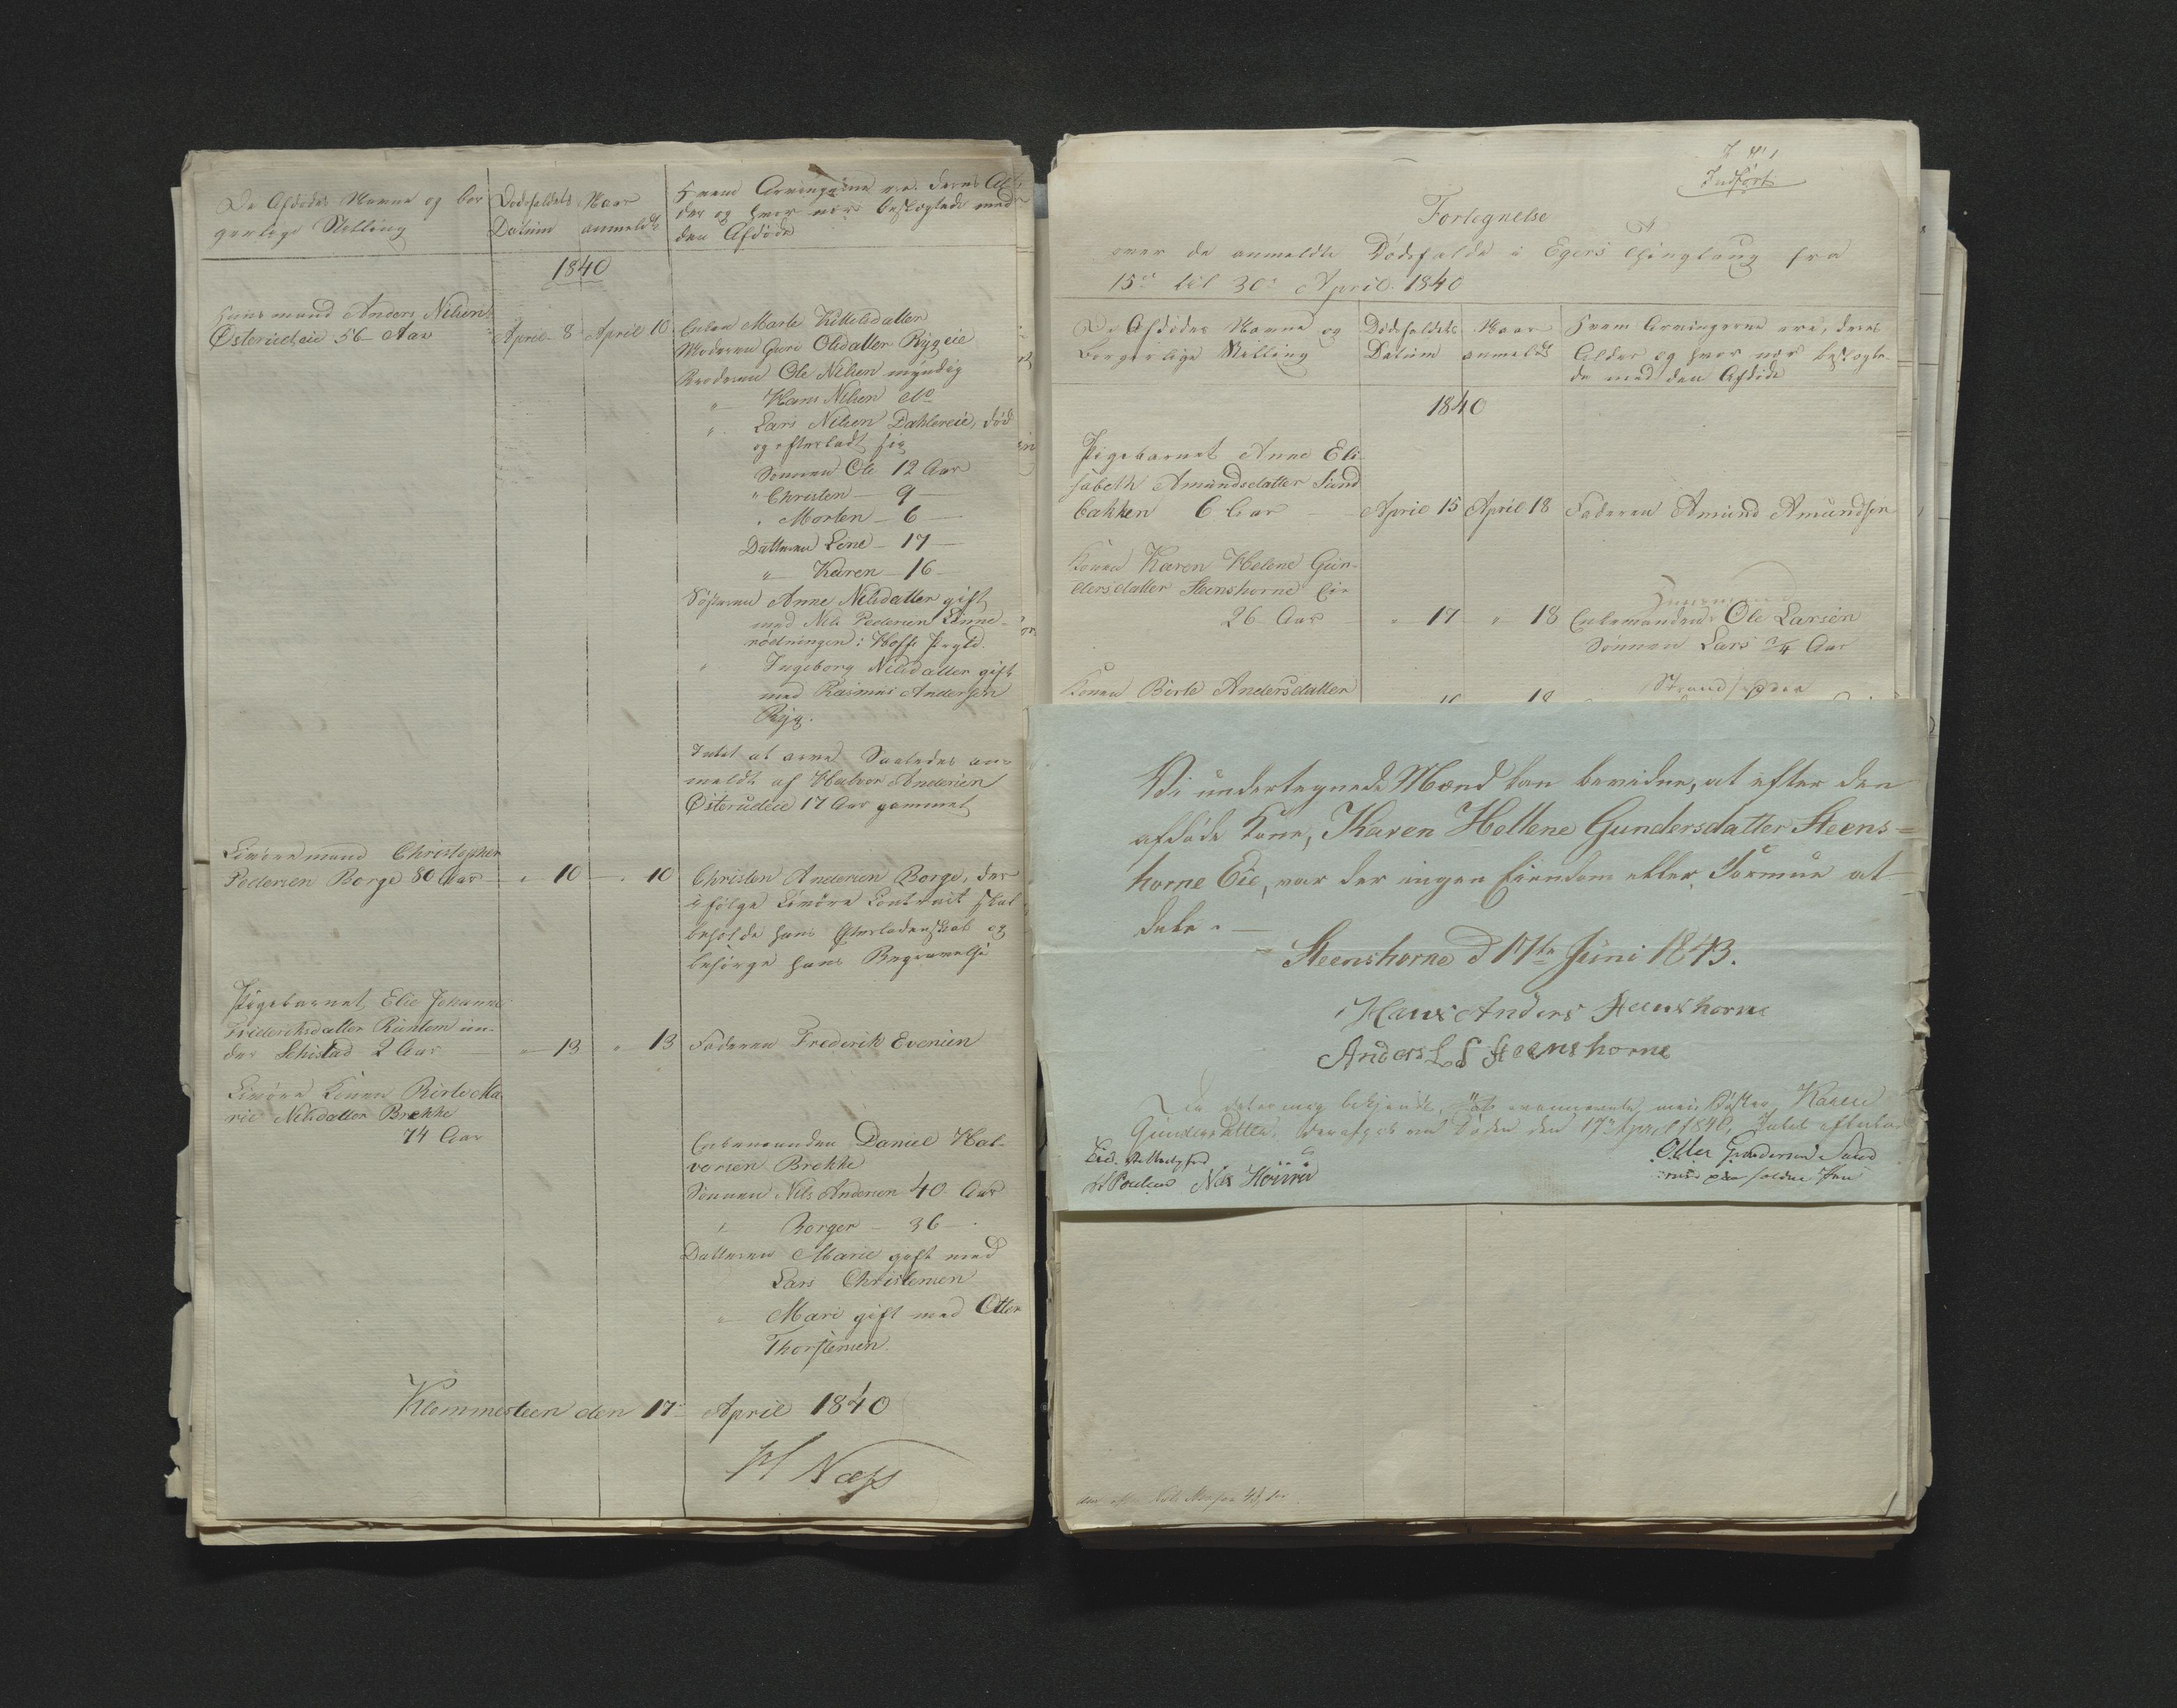 De Afdødes Navne og bor
gerlige Stilling
Dødsfaldets
Datum
Naar
anmeldt
Hvem Arvingerne ere, deres Al
der og hvor nær beslægtede med
den Afdøde
1840
Huusmand Anders Nilsen
Østerudeie 56 Aar
April 8
April 10
Enken Marte Kittelsdatter
Moderen Guri Olsdatter Rygeie
Broderen Ole Nilsen myndig
" Hans Nilsen do
" Lars Nilsen Dahlereie, død
og efterladt sig
Sønnen Ole 12 Aar
" Christen — 9 —
" Morten — 6 —
Datteren Line — 17 —
" Karen — 16 —
Søsteren Anne Nilsdatter gift
med Nils Pedersen
i Hoffs Prgld.
" Ingeborg Nilsdatter gift
med Rasmus Andersen
Ryg.
Intet at arve Saaledes an-
meldt af Halvor Andersen
Østerudeie 17 Aar gammel
Livøremand Christopher
Pedersen Borge 80 Aar
" 10
" 10
Christen Andersen Borge, der
ifølge Livøre Contract skal
beholde hans Efterladenskab og
besørge hans Begravelse
Pigebarnet Elie Johanne
Frideriksdatter Runtom un-
der Schistad 2 Aar
" 13
" 13
Faderen Frederik Evensen
Livøre Konen Birte Ma
rie Nilsdatter Brekke
74 Aar
Enkemanden Daniel Hal-
vorsen Brekke
Sønnen Nils Andersen 40 Aar
" Borger — 36 —
Datteren Marie gift med
Lars Christensen
" Mari gift med Otter
Thorstensen
Klommesteen den 17 April 1840
H Næss
Indført
Fortegnelse
over de anmeldte Dødsfalde i Egers Thinglaug fra
15de til 30te April 1840
De Afdødes Navne og
Borgerlige Stilling
Dødsfaldets
Datum
Naar
anmeldt
Hvem Arvingerne ere, deres
Alder og hvor nær beslægte-
de med den Afdøde
1840
Pigebarnet Anne Eli
sabeth Amundsdatter Sund
bakken 6 Aar
April 15
April 18
Faderen Amund Amundsen
Konen Karen Helene Gun-
dersdatter Steenshorne Eie
26 Aar
" 17
" 18
Huusmand
Enkemanden Ole Larsen
Sønnen Lars 3/4 Aar
Konen Birte Andersdatter
18
Strandsidder
Vi undertegnede Mænd kan bevidne, at efter den
afdøde Kone, Karen Hellene Gundersdatter Steens=
horne Eie, var der ingen Eiendom eller Formue at
dele. —
Steenshorne d 17de Juni 1843.
Hans Anders Steenshorne
Anders L S Steenshorne
bekjendt, at ovennævnte min Søster Karen
Gundersdatter, ved Døden den 17de April 1840, Intet efterlod
Otter Gundersen Sand